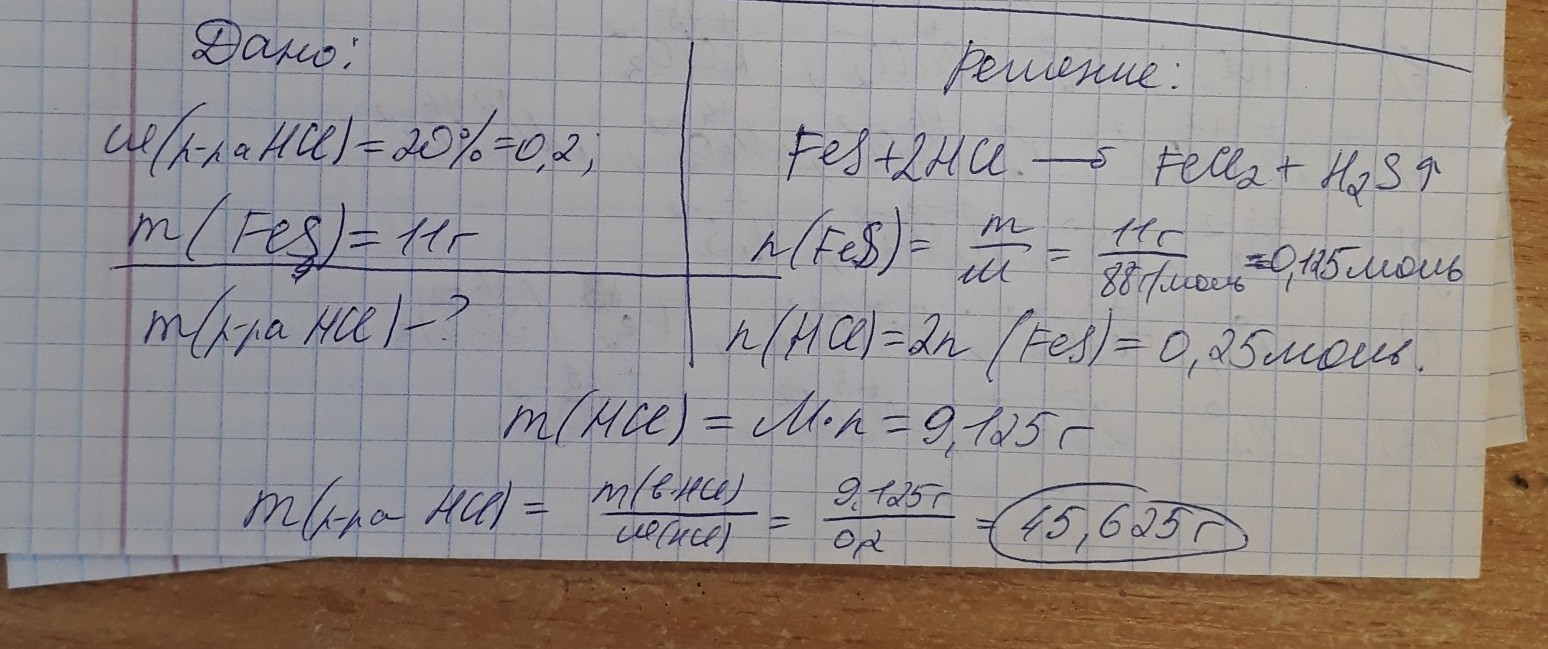 Дано:
ω(р-ра HCl) = 20% = 0,2;
m(FeS) = 11г
m(р-ра HCl) - ?
Решение:
FeS + 2HCl → FeCl₂ + H₂S↑
n(FeS) = m/M = 11г/88г/моль = 0,125моль
n(HCl) = 2n (FeS) = 0,25моль.
m(HCl) = M·n = 9,125г
m(р-ра HCl) = m(в-HCl)/ω(HCl) = 9,125г/0,2 = 45,625г